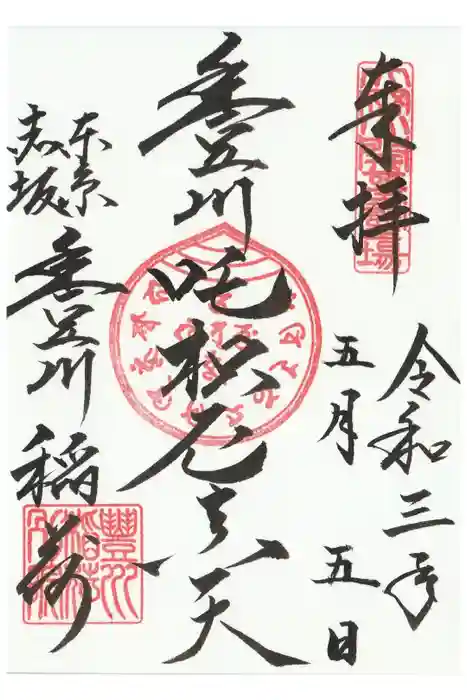 奉拝
令和三年
五月 五日
豊川吒枳尼真天
東京
赤坂
豊川稲荷